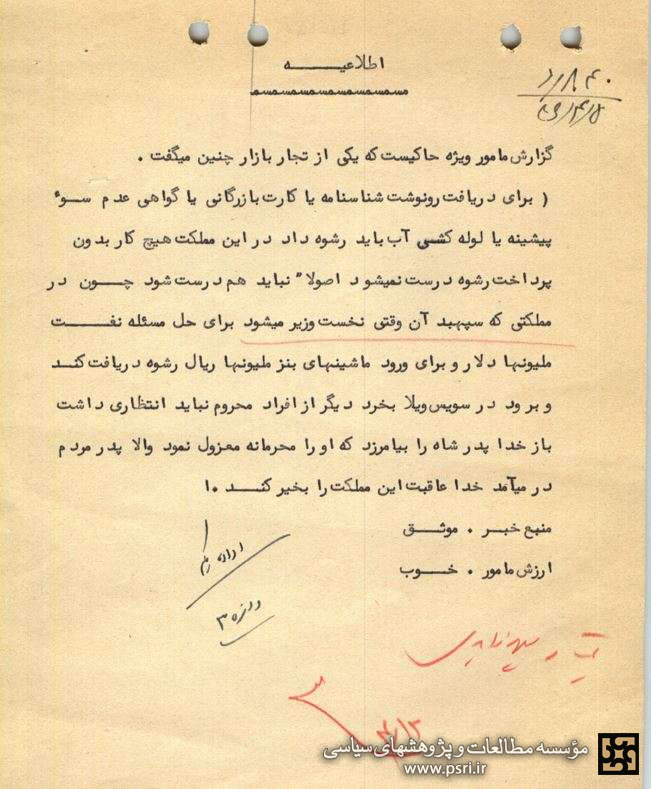 اطلاعیـــــه
گزارش مامور ویژه حاکیست که یکی از تجار بازار چنین میگفت .
( برای دریافت رونوشت شناسنامه یا کارت بازرگانی یا گواهی عدم سوء
پیشینه یا لوله کشی آب باید رشوه داد در این مملکت هیچ کار بدون
پرداخت رشوه درست نمیشود اصولا" نباید هم درست شود چـــون در
مملکتی که سپهبد آن وقتی نخست وزیر میشود برای حل مسئله نفـــت
ملیونها دلار و برای ورود ماشینهای بنز ملیونها ریال رشوه دریافت کند
و برود در سویس ویلا بخرد دیگر از افراد محروم نباید انتظاری داشت
باز خدا پدر شاه را بیامرزد که او را محرمانه معزول نمود والا پدر مردم
در میآمد خدا عاقبت این مملکت را بخیر کنـــد .)
منبع خبـر . موثـــق
ارزش مامور . خـــوب
۴/۱۲
مؤسسه مطالعات و پژوهشهای سیاسی
www.psri.ir